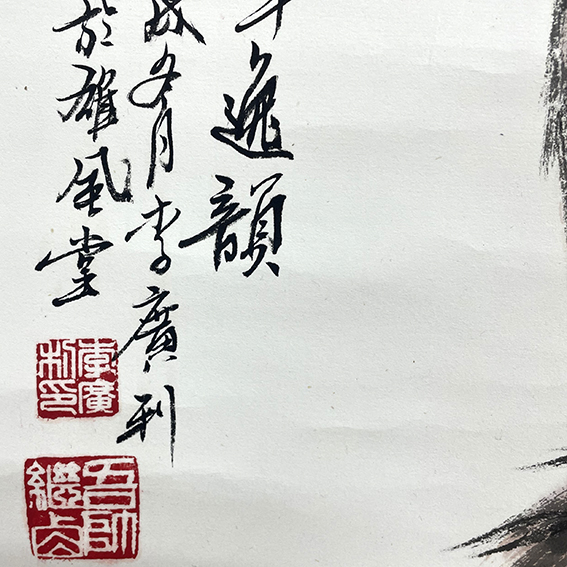 逸韻
戌冬月李廣利
於雄風堂
李廣
利印
吾師
繼卣